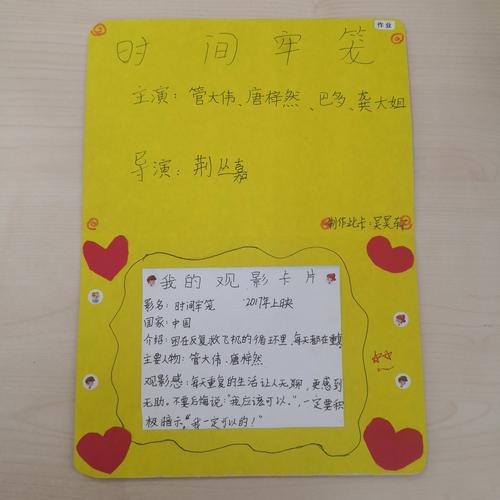 作业
时间牢笼
主演：管大伟、唐梓然、巴多、龚大姐
导演：荆丛嘉
制作此卡：吴昊
我的观影卡片
影名：时间牢笼 2017年上映
国家：中国
介绍：困在反复救飞机的循环里，每天都在重复
主要人物：管大伟、唐梓然
观影感：每天重复的生活让人无聊，更感到
无助。不要后悔说：“我应该可以。”，一定要积
极暗示：“我一定可以的！”